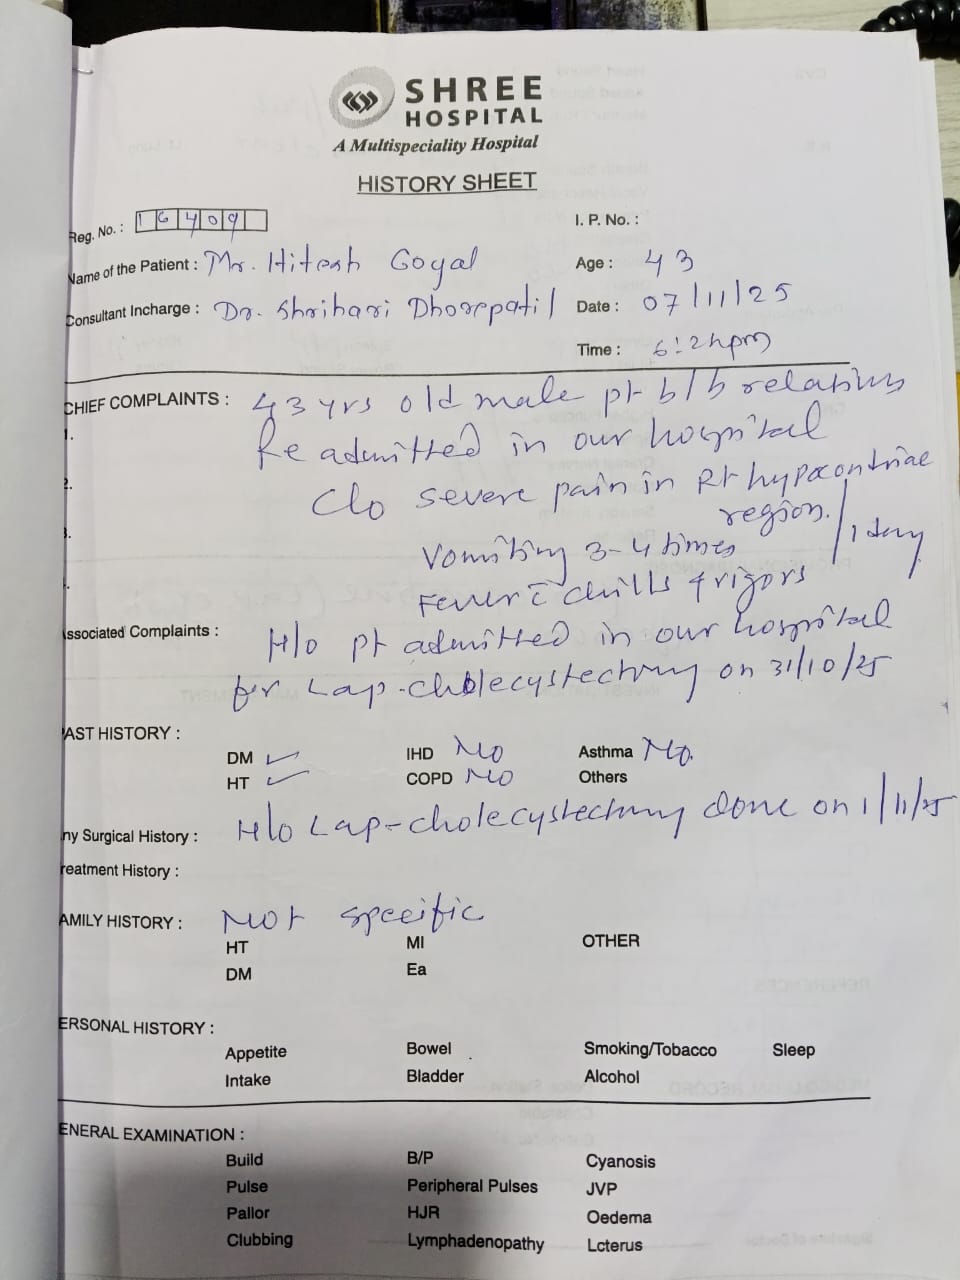 SHREE
HOSPITAL
A Multispeciality Hospital
HISTORY SHEET
Reg. No. : 16409
I. P. No. :
Name of the Patient : Mr. Hitesh Goyal
Age : 43
Consultant Incharge : Dr. Shrihari Dhorepatil
Date : 07/11/25
Time : 6:24pm
CHIEF COMPLAINTS : 43 yrs old male pt b/b relatives
1.
Re admitted in our hospital
2.
C/o severe pain in Rt hypocontriac
region.
3.
Vomiting 3-4 times
1 day
Fever c̄ chills & rigors
ssociated Complaints :
H/o pt admitted in our hospital
for Lap-cholecystectomy on 31/10/25
AST HISTORY :
DM ✓ IHD No Asthma No.
HT ✓ COPD No Others
ny Surgical History : H/o Lap-cholecystectomy done on 1/11/25
reatment History :
AMILY HISTORY : Not specific
HT MI OTHER
DM Ea
ERSONAL HISTORY :
Appetite Bowel Smoking/Tobacco Sleep
Intake Bladder Alcohol
ENERAL EXAMINATION :
Build B/P Cyanosis
Pulse Peripheral Pulses JVP
Pallor HJR Oedema
Clubbing Lymphadenopathy Lcterus